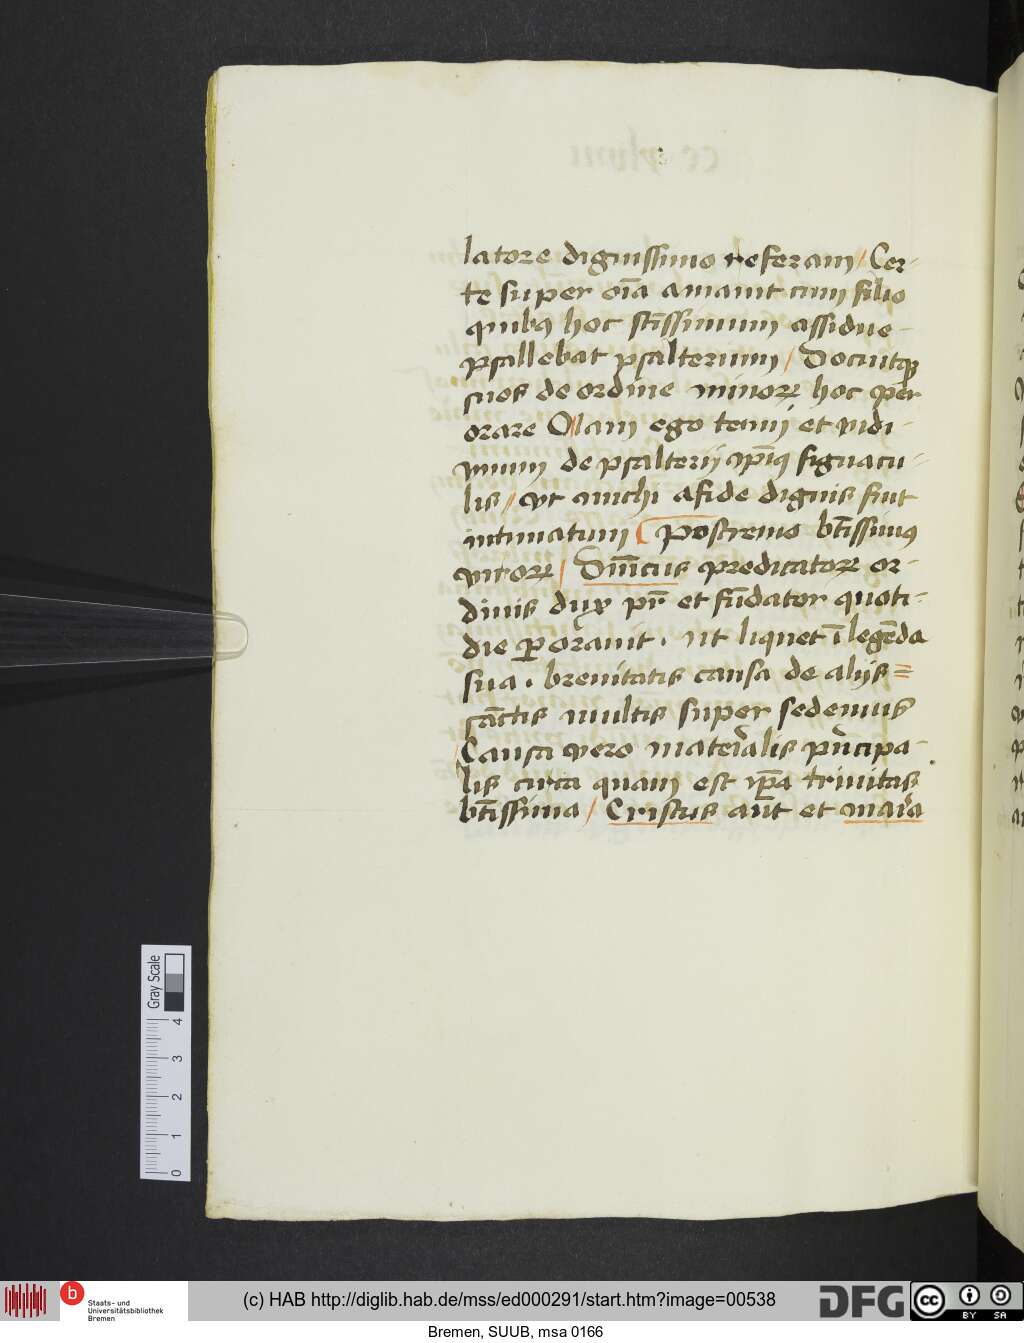 latore dignissimo referam / Cer-
te super oīa amauit cum filio
quibꝯ hoc sc̄issimum assidue-
psallebat psalterium / Docuitqꝫ
suos de ordine minorꝝ hoc ꝑ
orare Olam ego tenui et vidi-
mum de psalterij xp̄i figuacu-
lis / vt michi afide dignis fiut
intimatum Postremo bt̄issimus
virorꝝ / Dn̄icus predicatorꝝ or-
dinis dux pr̄ et fūdator quoti-
die ꝑorauit . ut liquet ī legēda
sua . breuitatis causa de alijs=
sc̄tis multis super sedemus
Causa vero mater̄alis pn̄cipa-
lis circa quam est ip̄a trinitas
bt̄issima / Cristus aūt et maria
Gray Scale
0 1 2 3 4
b Staats- und
Universitätsbibliothek
Bremen
(c) HAB http://diglib.hab.de/mss/ed000291/start.htm?image=00538
DFG
cc BY SA
Bremen, SUUB, msa 0166